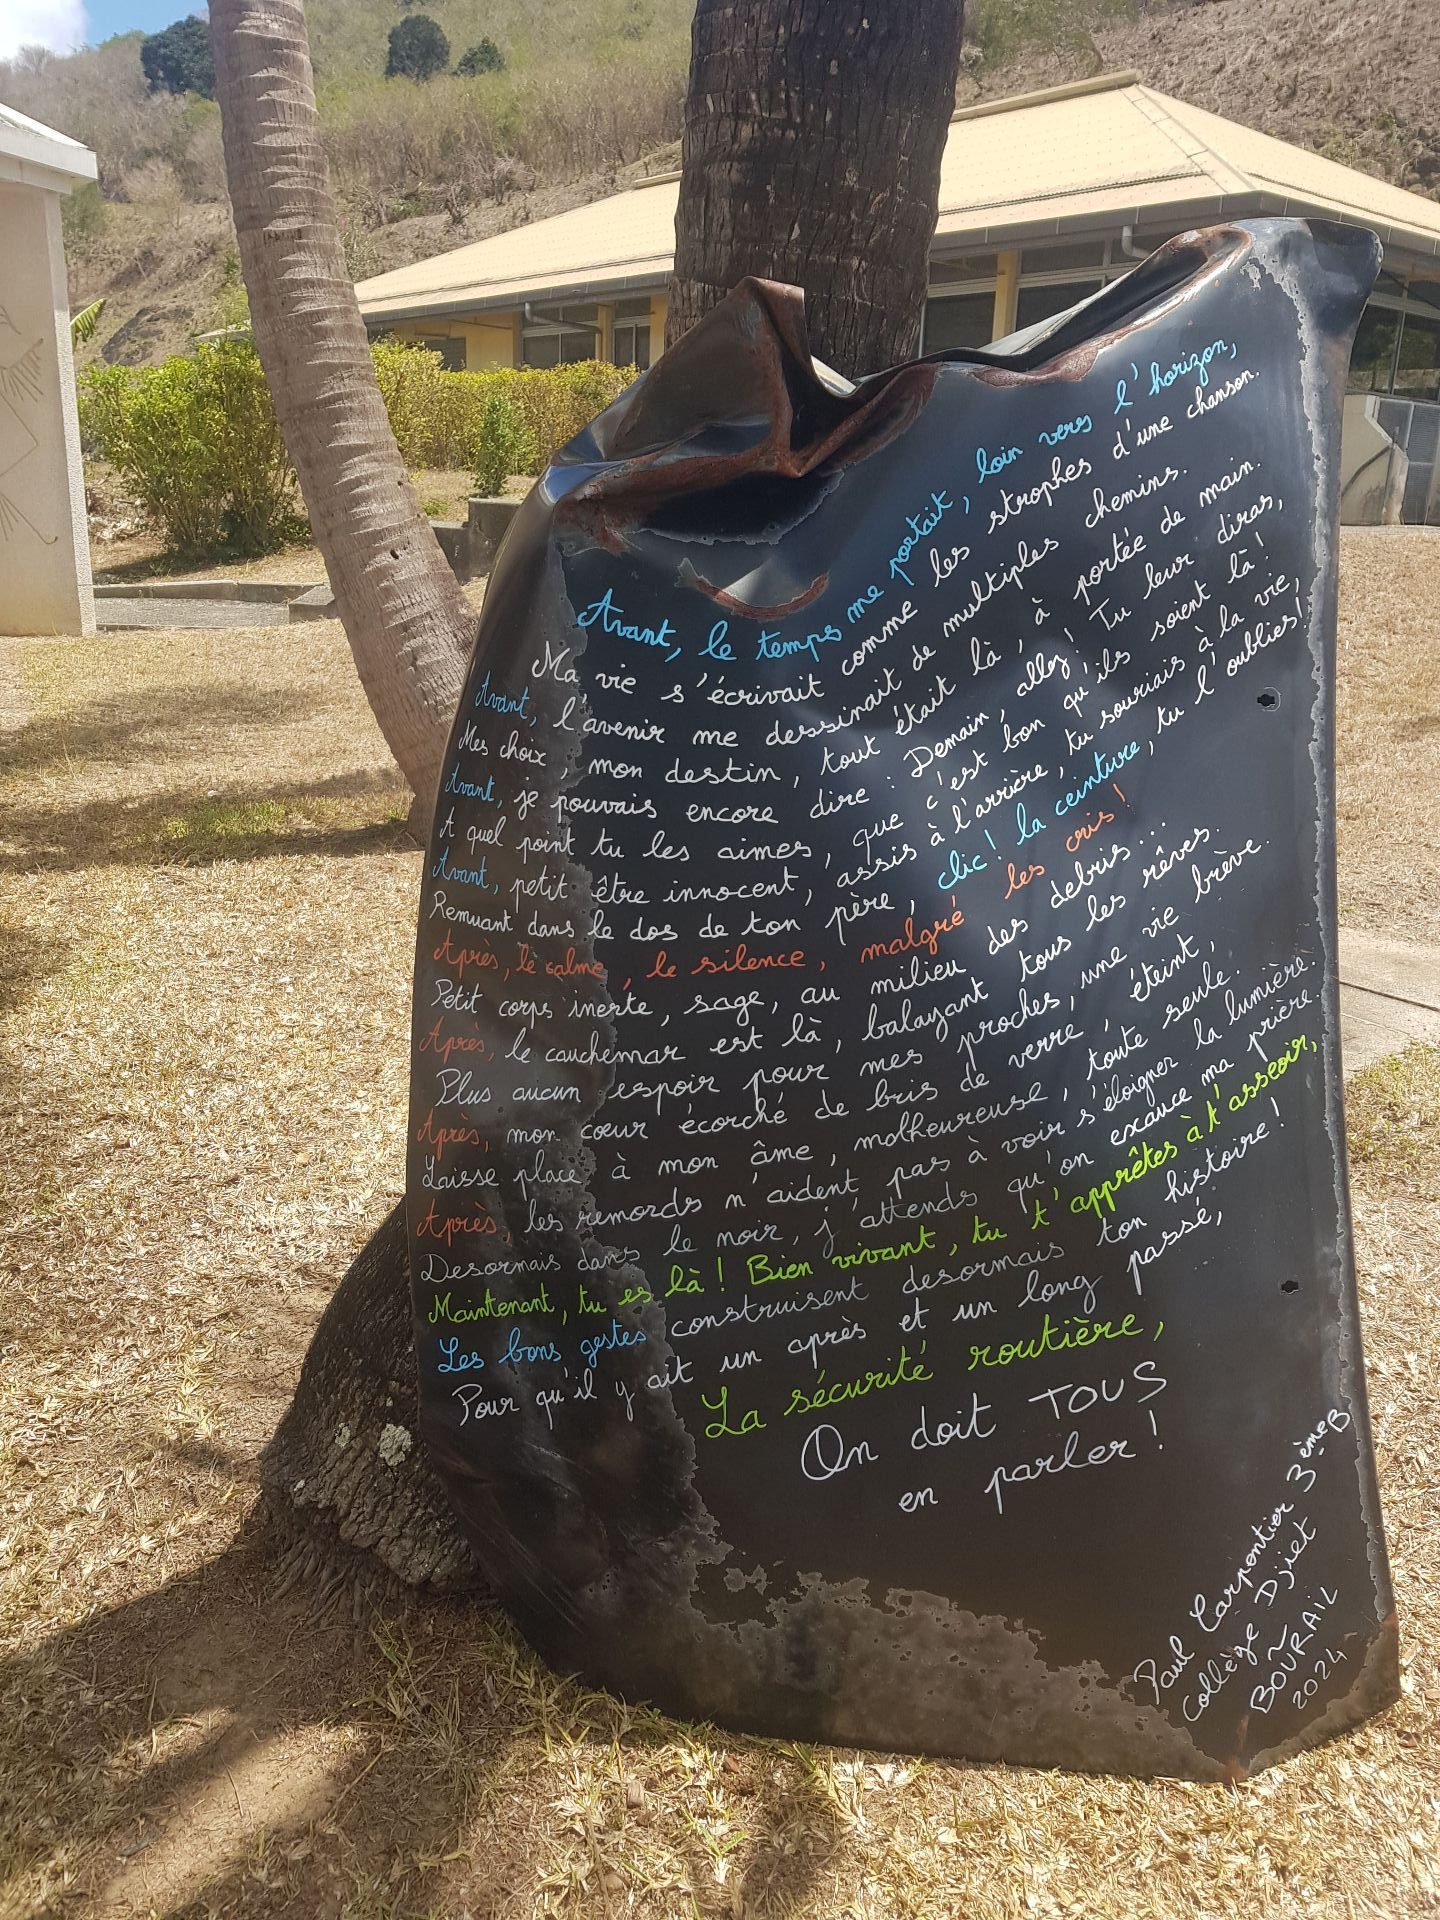 Avant, le temps me portait, loin vers l'horizon,
Ma vie s'écrivait comme les strophes d'une chanson.
Avant, l'avenir me dessinait de multiples chemins.
Mes choix, mon destin, tout était là, à portée de main.
Avant, je pouvais encore dire : Demain, allez ! Tu leur diras,
A quel point tu les aimes, que c'est bon qu'ils soient là !
Avant, petit être innocent, assis à l'arrière, tu souriais à la vie,
Remuant dans le dos de ton père, clic ! la ceinture, tu l'oublies !
Après, le calme, le silence, malgré les cris !
Petit corps inerte, sage, au milieu des debris...
Après, le cauchemar est là, balayant tous les rêves.
Plus aucun espoir pour mes proches, une vie brève.
Après, mon cœur écorché de bris de verre, éteint,
Laisse place à mon âme, malheureuse, toute seule.
Après, les remords n'aident pas à voir s'éloigner la lumière.
Desormais dans le noir, j'attends qu'on exauce ma prière.
Maintenant, tu es là ! Bien vivant, tu t'apprêtes à t'asseoir,
Les bons gestes construisent desormais ton histoire !
Pour qu'il y ait un après et un long passé,
La sécurité routière,
On doit TOUS
en parler !
Paul Carpentier 3ème B
Collège Djiet
BOURAIL
2024